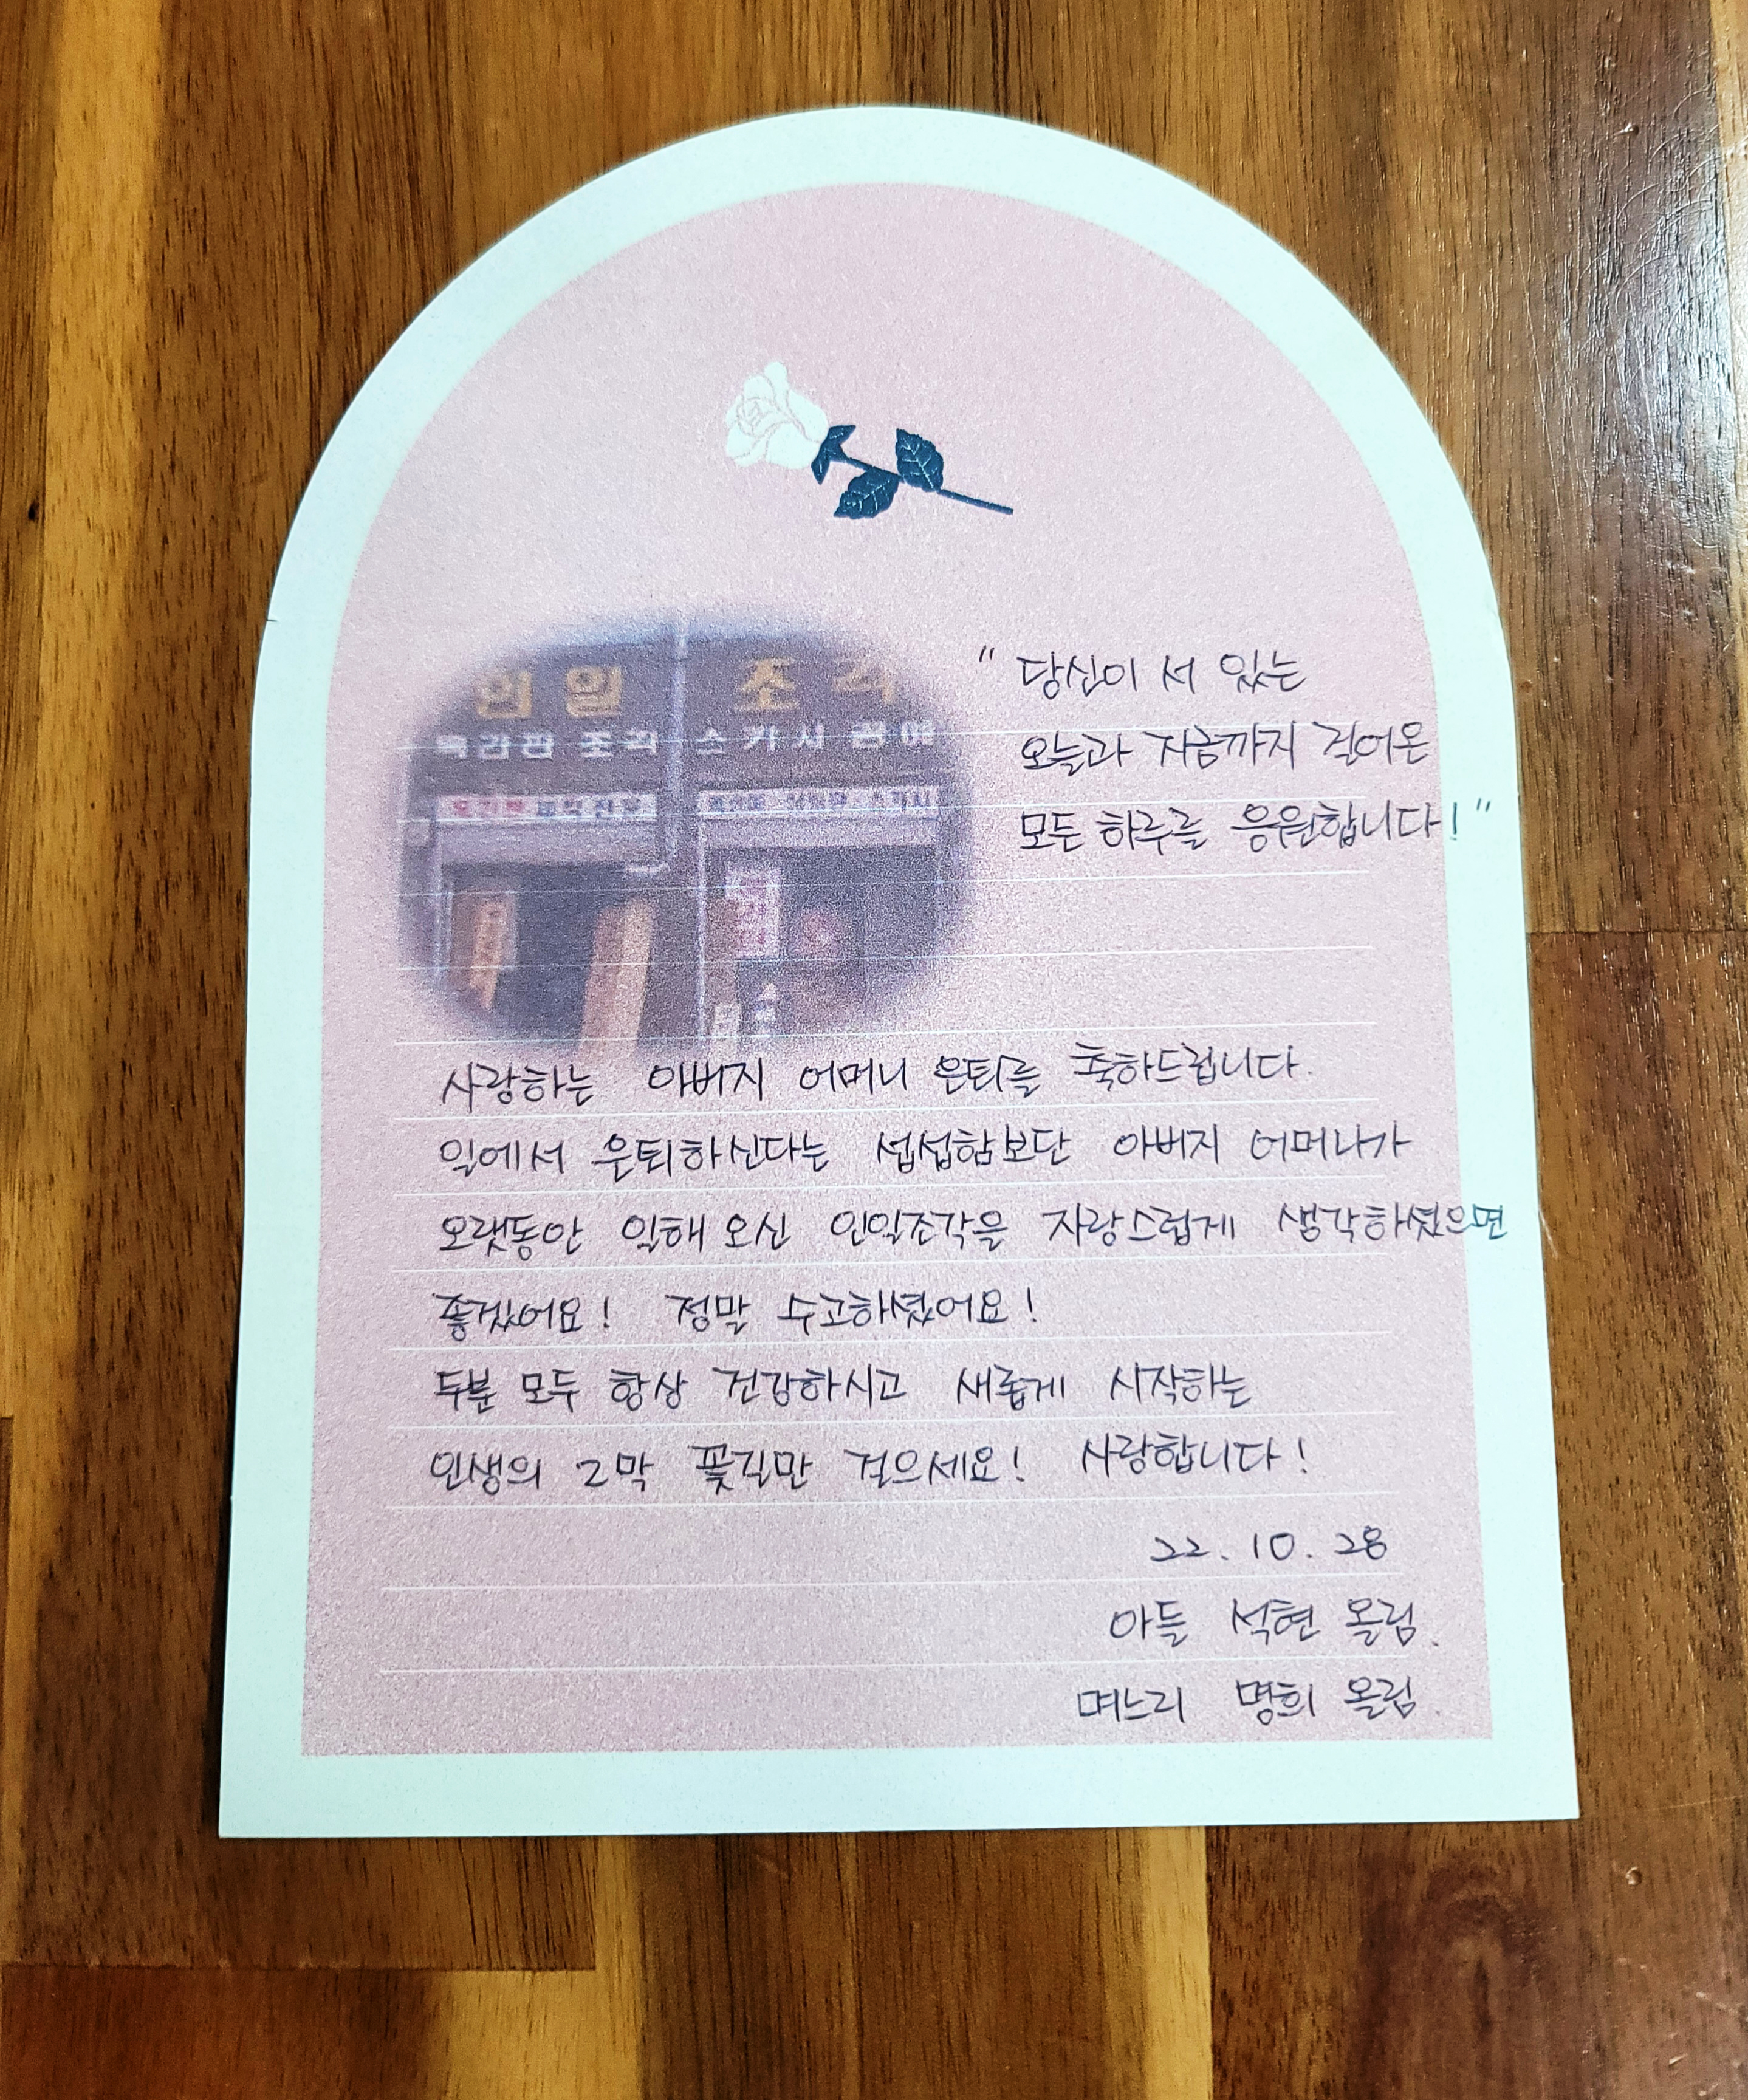 인일 조각
목간판 조각 스카시 판매
"당신이 서 있는
오늘과 지금까지 걸어온
모든 하루를 응원합니다!"
사랑하는 아버지 어머니 은퇴를 축하드립니다.
일에서 은퇴하신다는 섭섭함보단 아버지 어머니가
오랫동안 일해 오신 인일조각을 자랑스럽게 생각하셨으면
좋겠어요! 정말 수고하셨어요!
두분 모두 항상 건강하시고 새롭게 시작하는
인생의 2막 꽃길만 걸으세요! 사랑합니다!
22. 10. 28
아들 석현 올림.
며느리 명희 올림.